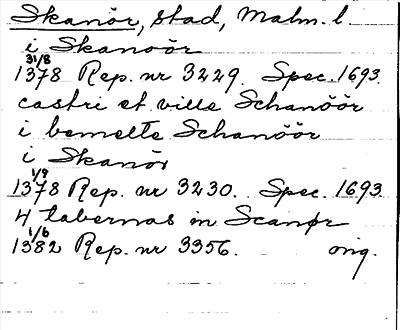 Skanör, stad, Malm. l.
i Skanöör
31/8
1378 Rep. nr 3229. Spec. 1693.
castri et ville Schanöör
i bemelte Schanöör
i Skanör
1/9
1378 Rep. nr 3230. Spec. 1693
4 tabernas in Scanør
1/6
1382 Rep. nr 3356. orig.